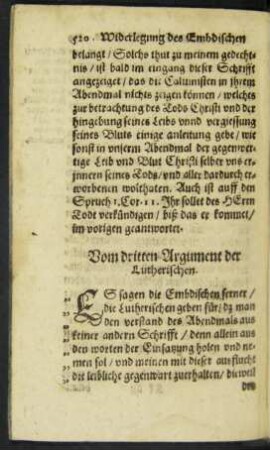 520. Widerlegung des Embdischen
belangt / Solchs thut zu meinem gedecht-
nis / ist bald im eingang dieser Schrifft
angezeiget / das die Caluinisten in jhrem
Abendmal nichts zeigen können / welches
zur betrachtung des Tods Christi vnd der
hingebung seines Leibs vnnd vergiessung
seines Bluts einige anleitung gebe / wie
sonst in vnserm Abendmal der gegenwer-
tige Leib vnd Blut Christi selber vns er-
jnnern seines Tods / vnd aller dardurch er-
worbenen wolthaten. Auch ist auff den
Spruch 1. Cor. 11. Jhr sollet des HErrn
Todt verkündigen / biß das er kommet /
im vorigen geantwortet.
Vom dritten Argument der
Lutherischen.
ES sagen die Embdischen ferner /
die Lutherischen geben für / dz man
den verstand des Abendmals aus
keiner andern Schrifft / denn allein aus
den worten der Einsatzung holen vnd ne-
men sol / vnd meinen mit dieser ausflucht
die leibliche gegenwart zuerhalten / dieweil